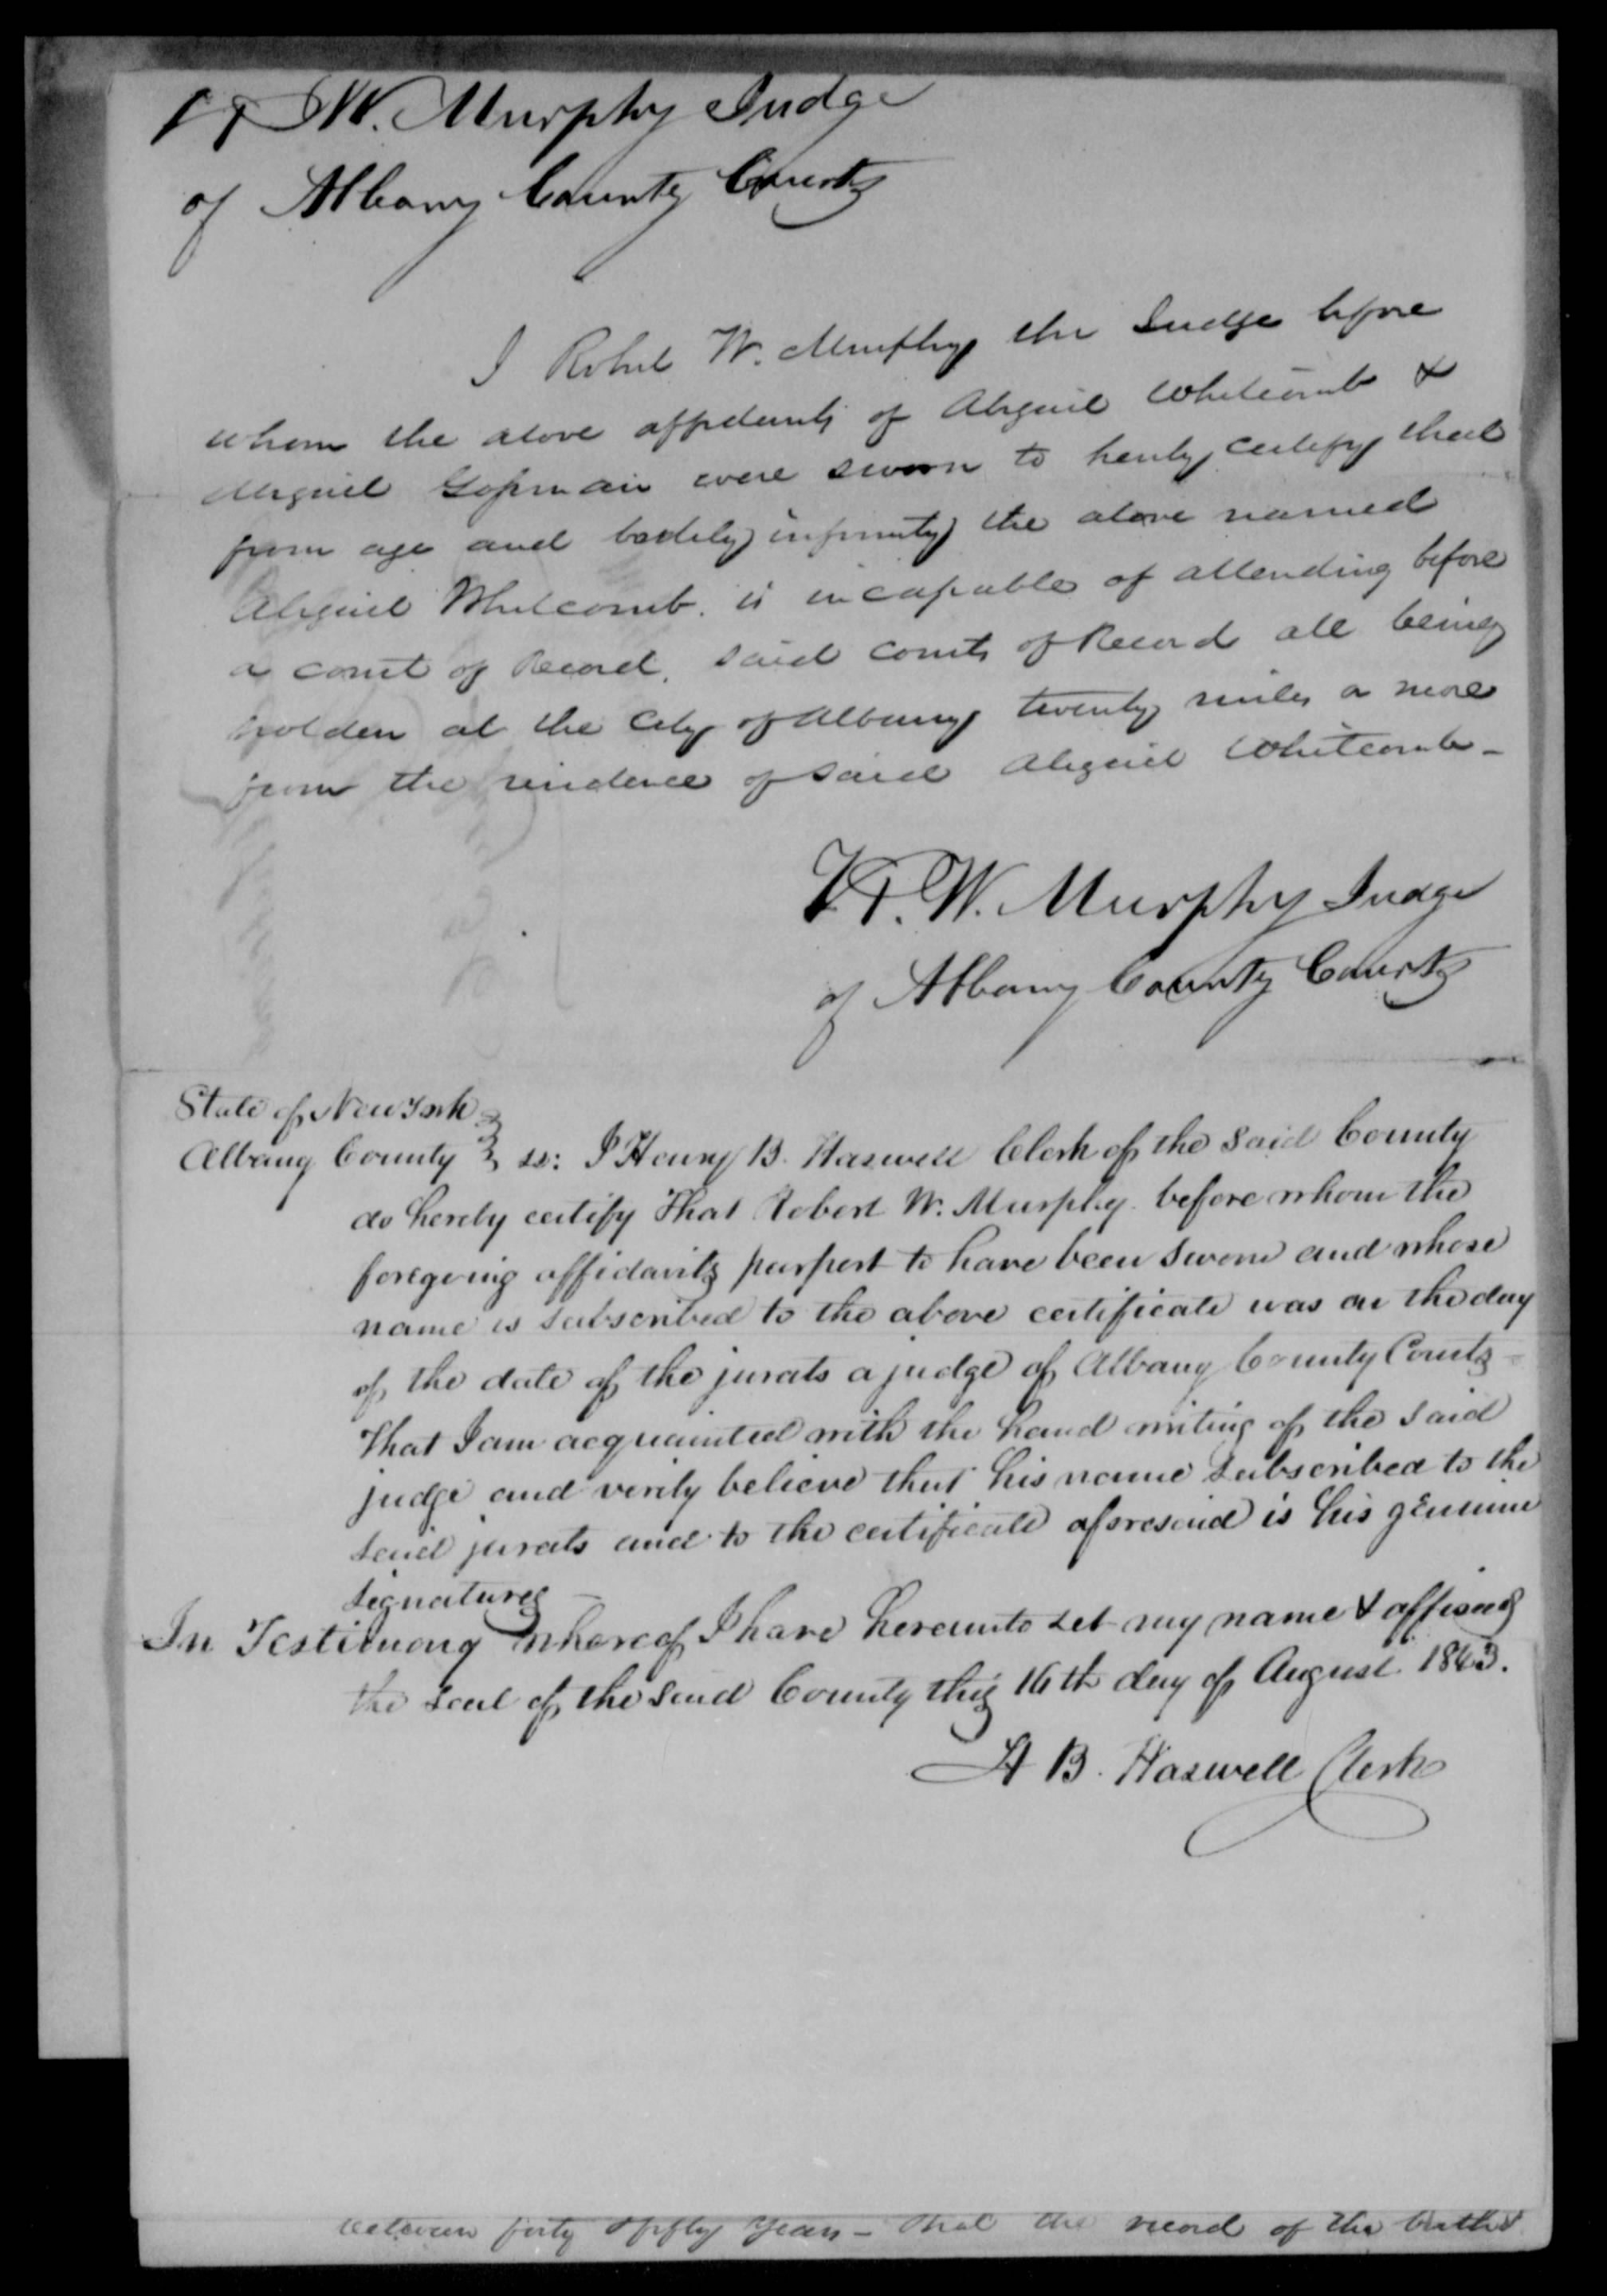 R W. Murphy Judge
of Albany County Courts
I Robert W. Murphy the Judge before
whom the above affidavits of Abigail Whitcomb &
Abigail were sworn to hereby certify that
from age and bodily infirmity the above named
Abigail Whitcomb. is incapable of attending before
a court of Record, said courts of Record all being
holden at the City of Albany twenty miles or more
from the residence of said Abigail Whitcomb -
R. W. Murphy Judge
of Albany County Courts
State of New York
Albany County ss: I Henry B. Haswell Clerk of the said County
do hereby certify that Robert W. Murphy before whom the
foregoing affidavits purport to have been sworn and whose
name is subscribed to the above certificate was on the day
of the date of the jurats a judge of Albany County Courts -
that I am acquainted with the hand writing of the said
judge and verily believe that his name subscribed to the
said jurats and to the certificate aforesaid is his genuine
signatures -
In Testimony whereof I have hereunto set my name & affixed
the seal of the said County this 16th day of August 1843.
H B. Haswell Clerk
between forty & fifty years - that the record of the births